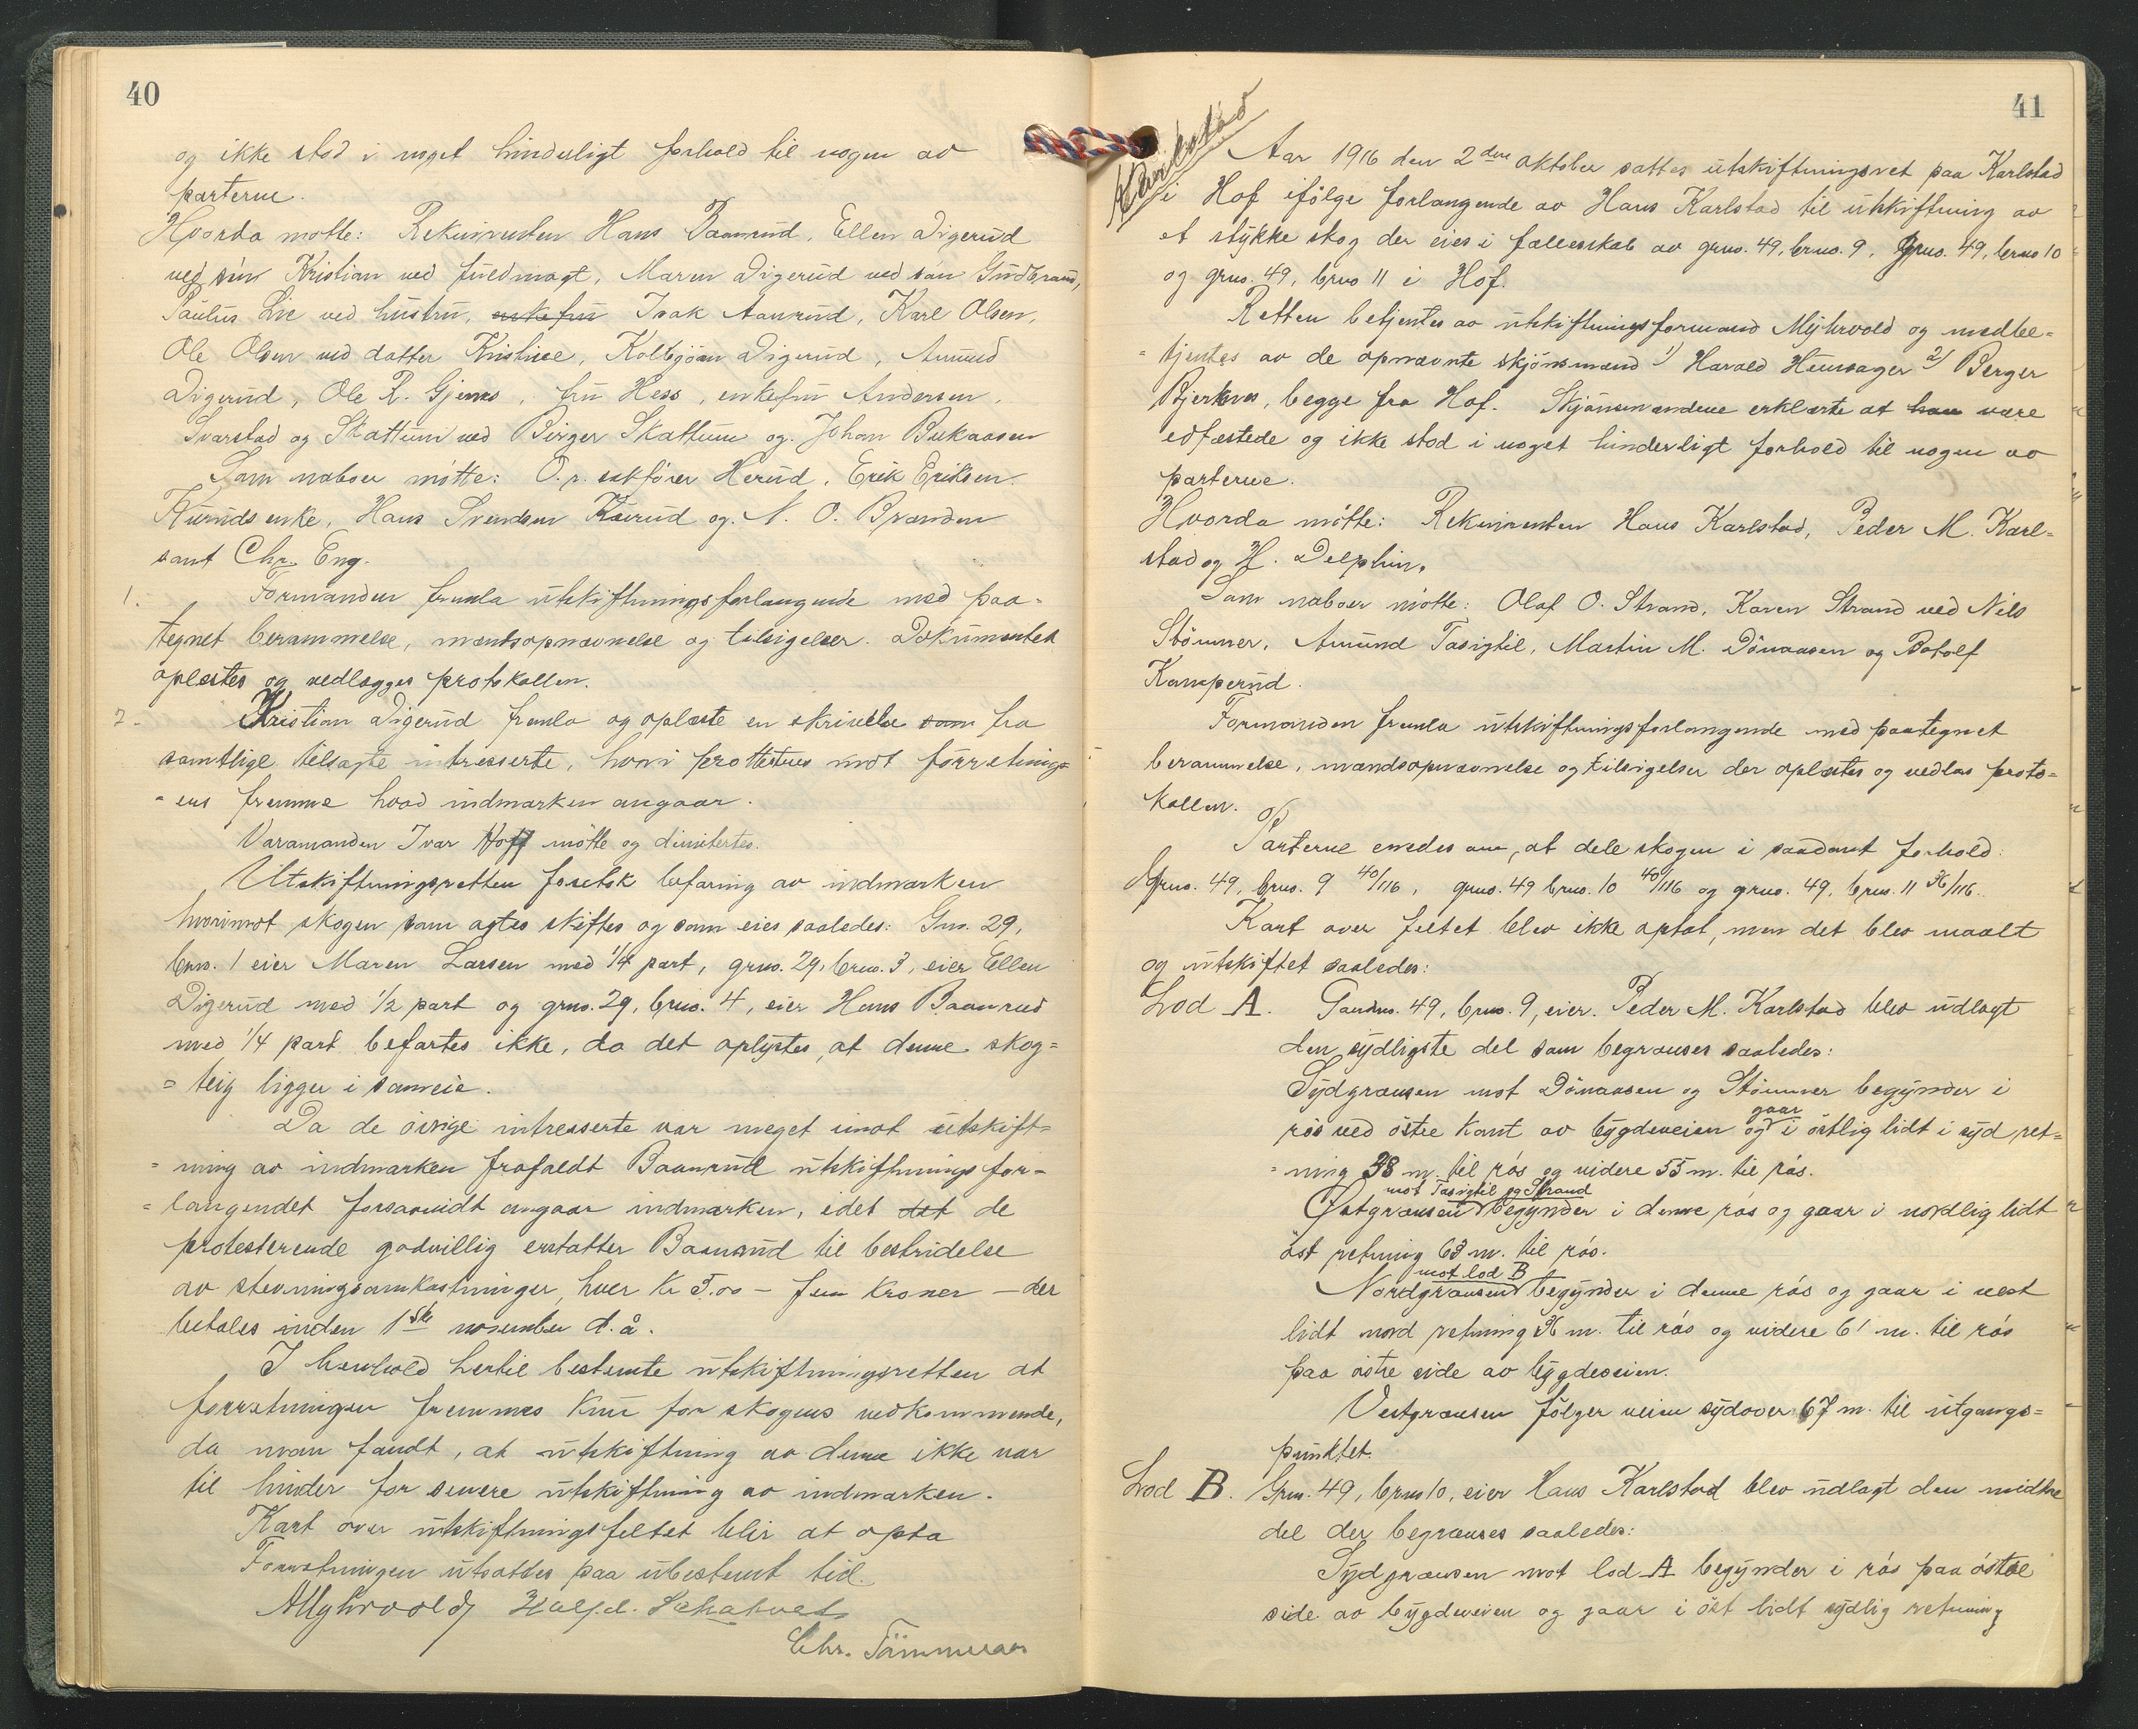 40
og ikke stod i noget hinderligt forhold til nogen av
parterne.
Hvorda møtte: Rekvirenten Hans Baanrud, Ellen Digerud
ved søn Kristian ved fuldmagt, Maren Digerud ved søn Gudbrand,
Paulus Lie ved hustru, enkefru Isak Aanrud, Karl Olsen,
Ole Olsen ved datter Kristine, Kolbjørn Digerud, Amund
Digerud, Ole R. Gjernes, fru Hess, enkefru Andersen,
Svarstad og Skattum ved Birger Skattum og Johan
Som naboer møtte: O.r. sakfører Herud, Erik Eriksen
enke, Hans Svendsen og N. O. Branden
samt Chr. Eng.
1. Formanden fremla utskiftningsforlangende med paa-
tegnet berammelse, mandsopnævnelse og tilsigelser. Dokumentet
oplæstes og vedlægges protokollen.
2. Kristian Digerud fremla og oplæste en skrivelse som fra
samtlige tilsagte intresserte, hvori protesteres mot forretning-
ens fremme hvad indmarken angaar.
Varamanden Ivar Hoff møtte og dimitertes.
Utskiftningsretten foretok befaring av indmarken
hvorimot skogen som agtes skiftes og som eies saaledes: Gno. 29,
brno. 1 eier Maren Larsen med 1/4 part, grno. 29, brno. 3, eier Ellen
Digerud med 1/2 part og grno. 29, brno. 4, eier Hans Baanrud
med 1/4 part befartes ikke, da det oplystes, at denne skog=
= teig ligger i sameie.
Da de øvrige intresserte var meget imot utskift=
= ning av indmarken frafaldt Baanrud utskiftningsfor-
= langendet forsaavidt angaar indmarken, idet det de
protesterende godvillig erstatter Baanrud til bestridelse
av stevningsomkostninger, hver kr 5.00 - fem kroner - der
betales inden 1ste november d. å.
I henhold hertil bestemte utskiftningsretten at
forretningen fremmes kun for skogens vedkommende,
da man fandt, at utskiftning av denne ikke var
til hinder for senere utskiftning av indmarken.
Kart over utskiftningsfeltet blir at opta
Forretningen utsattes paa ubestemt tid.
AMyhrvold
Chr. Tömmeraas
41
Karlstad
Aar 1916 den 2den oktober sattes utskiftningsret paa Karlstad
i Hof ifölge forlangende av Hans Karlstad til utskiftning av
et stykke skog der eies i fællesskab av grno. 49, brno. 9, grno. 49, brno 10
og grno. 49, brno 11 i Hof.
Retten betjentes av utskiftningsformand Myhrvold og medbe=
= tjentes av de opnævnte skjönsmænd 1) Harald Hemsager 2) Berger
Bjerknes, begge fra Hof. Skjönsmændene erklærte at han være
edfæstede og ikke stod i noget hinderligt forhold til nogen av
parterne.
Hvorda mötte: Rekvirenten Hans Karlstad, Peder M. Karl=
stad og H. Delphin.
Som naboer mötte: Olaf O. Strand, Karen Strand ved Nils
Stömner, Amund Tasigtil, Martin M. Dönaasen og Botolf
Kamperud.
Formanden fremla utskiftningsforlangende med paategnet
berammelse, mandsopnævnelse og tilsigelser der oplæstes og vedlas proto=
kollen.
Parterne enedes om, at dele skogen i saadant forhold:
Grno. 49, brno. 9 40/116, grno. 49 brno. 10 40/116 og grno. 49, brno. 11 36/116.
Kart over feltet blev ikke optat, men det blev maalt
og utskiftet saaledes:
Lod A. Gaardno. 49, brno. 9, eier Peder M. Karlstad blev udlagt
den sydligste del som begrænses saaledes:
Sydgrænsen mot Dönaasen og Stömner begynder i
rös ved östre kant av bygdeveien og gaar i östlig lidt i syd ret=
= ning 38 m. til rös og videre 55 m. til rös.
Östgrænsen mot Tasigtil og Strand begynder i denne rös og gaar i nordlig lidt
öst retning 63 m. til rös.
Nordgrænsen mot lod B begynder i denne rös og gaar i vest
lidt nord retning 36 m. til rös og videre 61 m. til rös
paa östre side av bygdeveien.
Vestgrænsen fölger veien sydover 67 m. til utgangs=
punktet.
Lod B. Grno. 49, brno 10, eier Hans Karlstad blev udlagt den midtre
del der begrænses saaledes:
Sydgrænsen mot lod A begynder i rös paa östre
side av bygdeveien og gaar i öst lidt sydlig retning